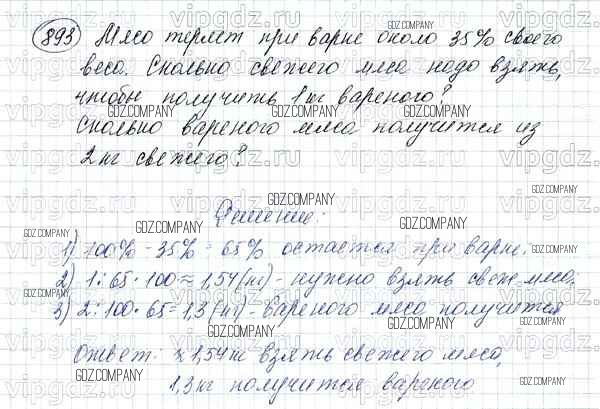 893 Мясо теряет при варке около 35% своего
веса. Сколько свежего мяса надо взять,
чтобы получить 1 кг вареного?
Сколько вареного мяса получится из
2 кг свежего?
Решение:
1) 100% - 35% = 65% остается при варке.
2) 1 : 65 · 100 ≈ 1,54 (кг) - нужно взять свеж. мяса;
3) 2 : 100 · 65 = 1,3 (кг) - вареного мяса получится
Ответ: ≈ 1,54 кг взять свежего мяса,
1,3 кг получится вареного
vipgdz.ru
GDZ.COMPANY